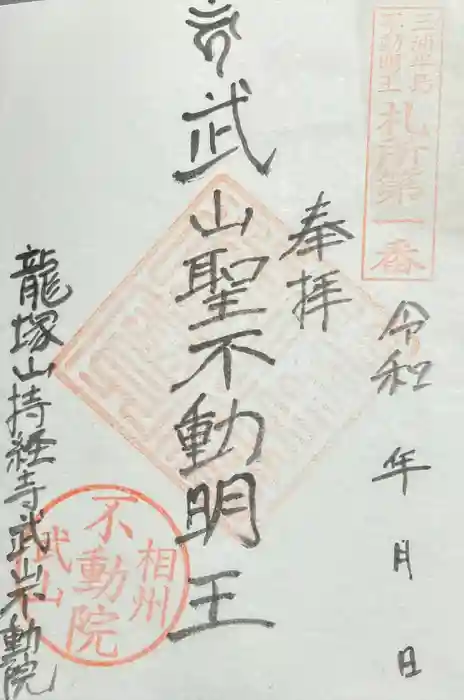 三浦半島
不動明王
札所第一番
令和 年 月 日
奉拝
武山聖不動明王
龍塚山持経寺武山不動院
相州
不動院
武山